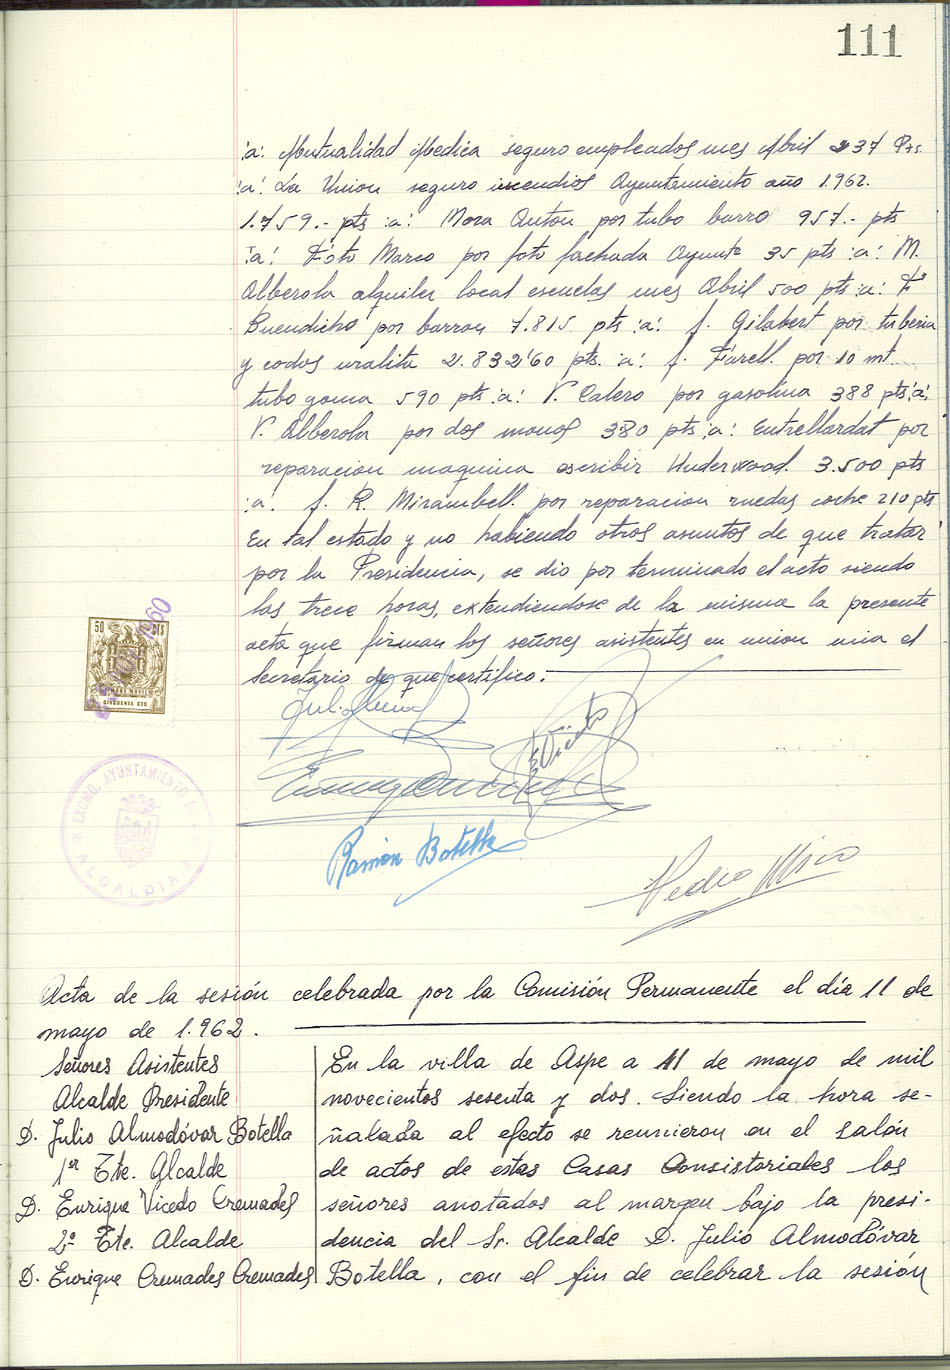 111
:a: Mutualidad Medica seguro empleados mes Abril 237 Pts.
:a: La Union seguro incendios Ayuntamiento año 1.962.
1.759.- pts :a: Mora Anton por tubo barro 957.- pts
:a: Foto Marco por foto fachada Ayunte 35 pts :a: M.
Alberola alquiler local escuelas mes Abril 500 pts :a: F
Buendicho por barrau 7.815 pts :a: J. Gilabert por tuberia
y codos uralita 2.832'60 pts. :a: J. Farell. por 10 mt
tubo goma 590 pts :a: V. Calero por gasolina 388 pts :a:
V. Alberola por dos monos 380 pts :a: Entrellardat por
reparacion maquina escribir Underwood. 3.500 pts
:a. J. R. Mirambell. por reparacion ruedas coche 210 pts
En tal estado y no habiendo otros asuntos de que tratar
por la Presidencia, se dio por terminado el acto siendo
las trece horas, extendiendose de la misma la presente
acta que firman los señores asistentes en union mia el
Secretario de que certifico.
50 CTS
TIMBRE MOVIL
CINCUENTA CTS
1960
E. Vicedo
EXCMO. AYUNTAMIENTO DE
ALCALDIA
Ramón Botella
Pedro Mico
Acta de la sesión celebrada por la Comisión Permanente el día 11 de
mayo de 1.962.
Señores Asistentes
Alcalde Presidente
D. Julio Almodóvar Botella
1er Tte. Alcalde
D. Enrique Vicedo Cremades
2º Tte. Alcalde
D. Enrique Cremades Cremades
En la villa de Aspe a 11 de mayo de mil
novecientos sesenta y dos. Siendo la hora se-
ñalada al efecto se reunieron en el salón
de actos de estas Casas Consistoriales los
señores anotados al margen bajo la presi-
dencia del Sr. Alcalde D. Julio Almodóvar
Botella, con el fin de celebrar la sesión